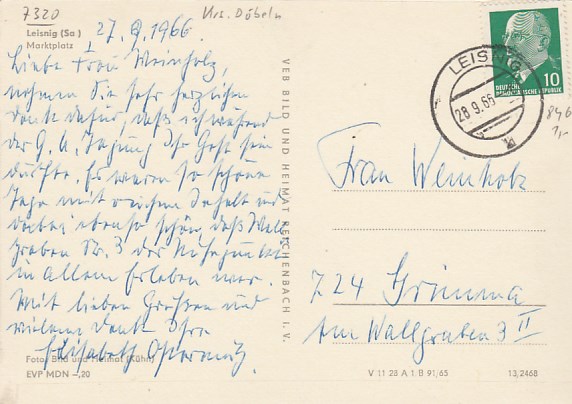 7320 Krs. Döbeln
Leisnig (Sa)
Marktplatz
27.9.1966.
Liebe Frau Weinholz,
nehmen Sie sehr herzlichen
Dank dafür, daß ich während
der G.A. Tagung Ihr Gast sein
durfte. Es waren so schöne
Tage mit reichem Inhalt und
dabei ebenso schön, daß Wall-
graben Nr. 3 der Ruhepunkt
in allem Erleben war.
Mit lieben Grüßen und
vielem Dank Ihre
Elisabeth
Foto: Bild und Heimat (Kühn)
EVP MDN –,20
VEB BILD UND HEIMAT REICHENBACH I. V.
DEUTSCHE
DEMOKRATISCHE REPUBLIK
10
LEISNIG
28.9.66
846
1,-
Frau Weinholz
724 Grimma
Am Wallgraben 3 II
V 11 28 A 1 B 91/65
13,2468